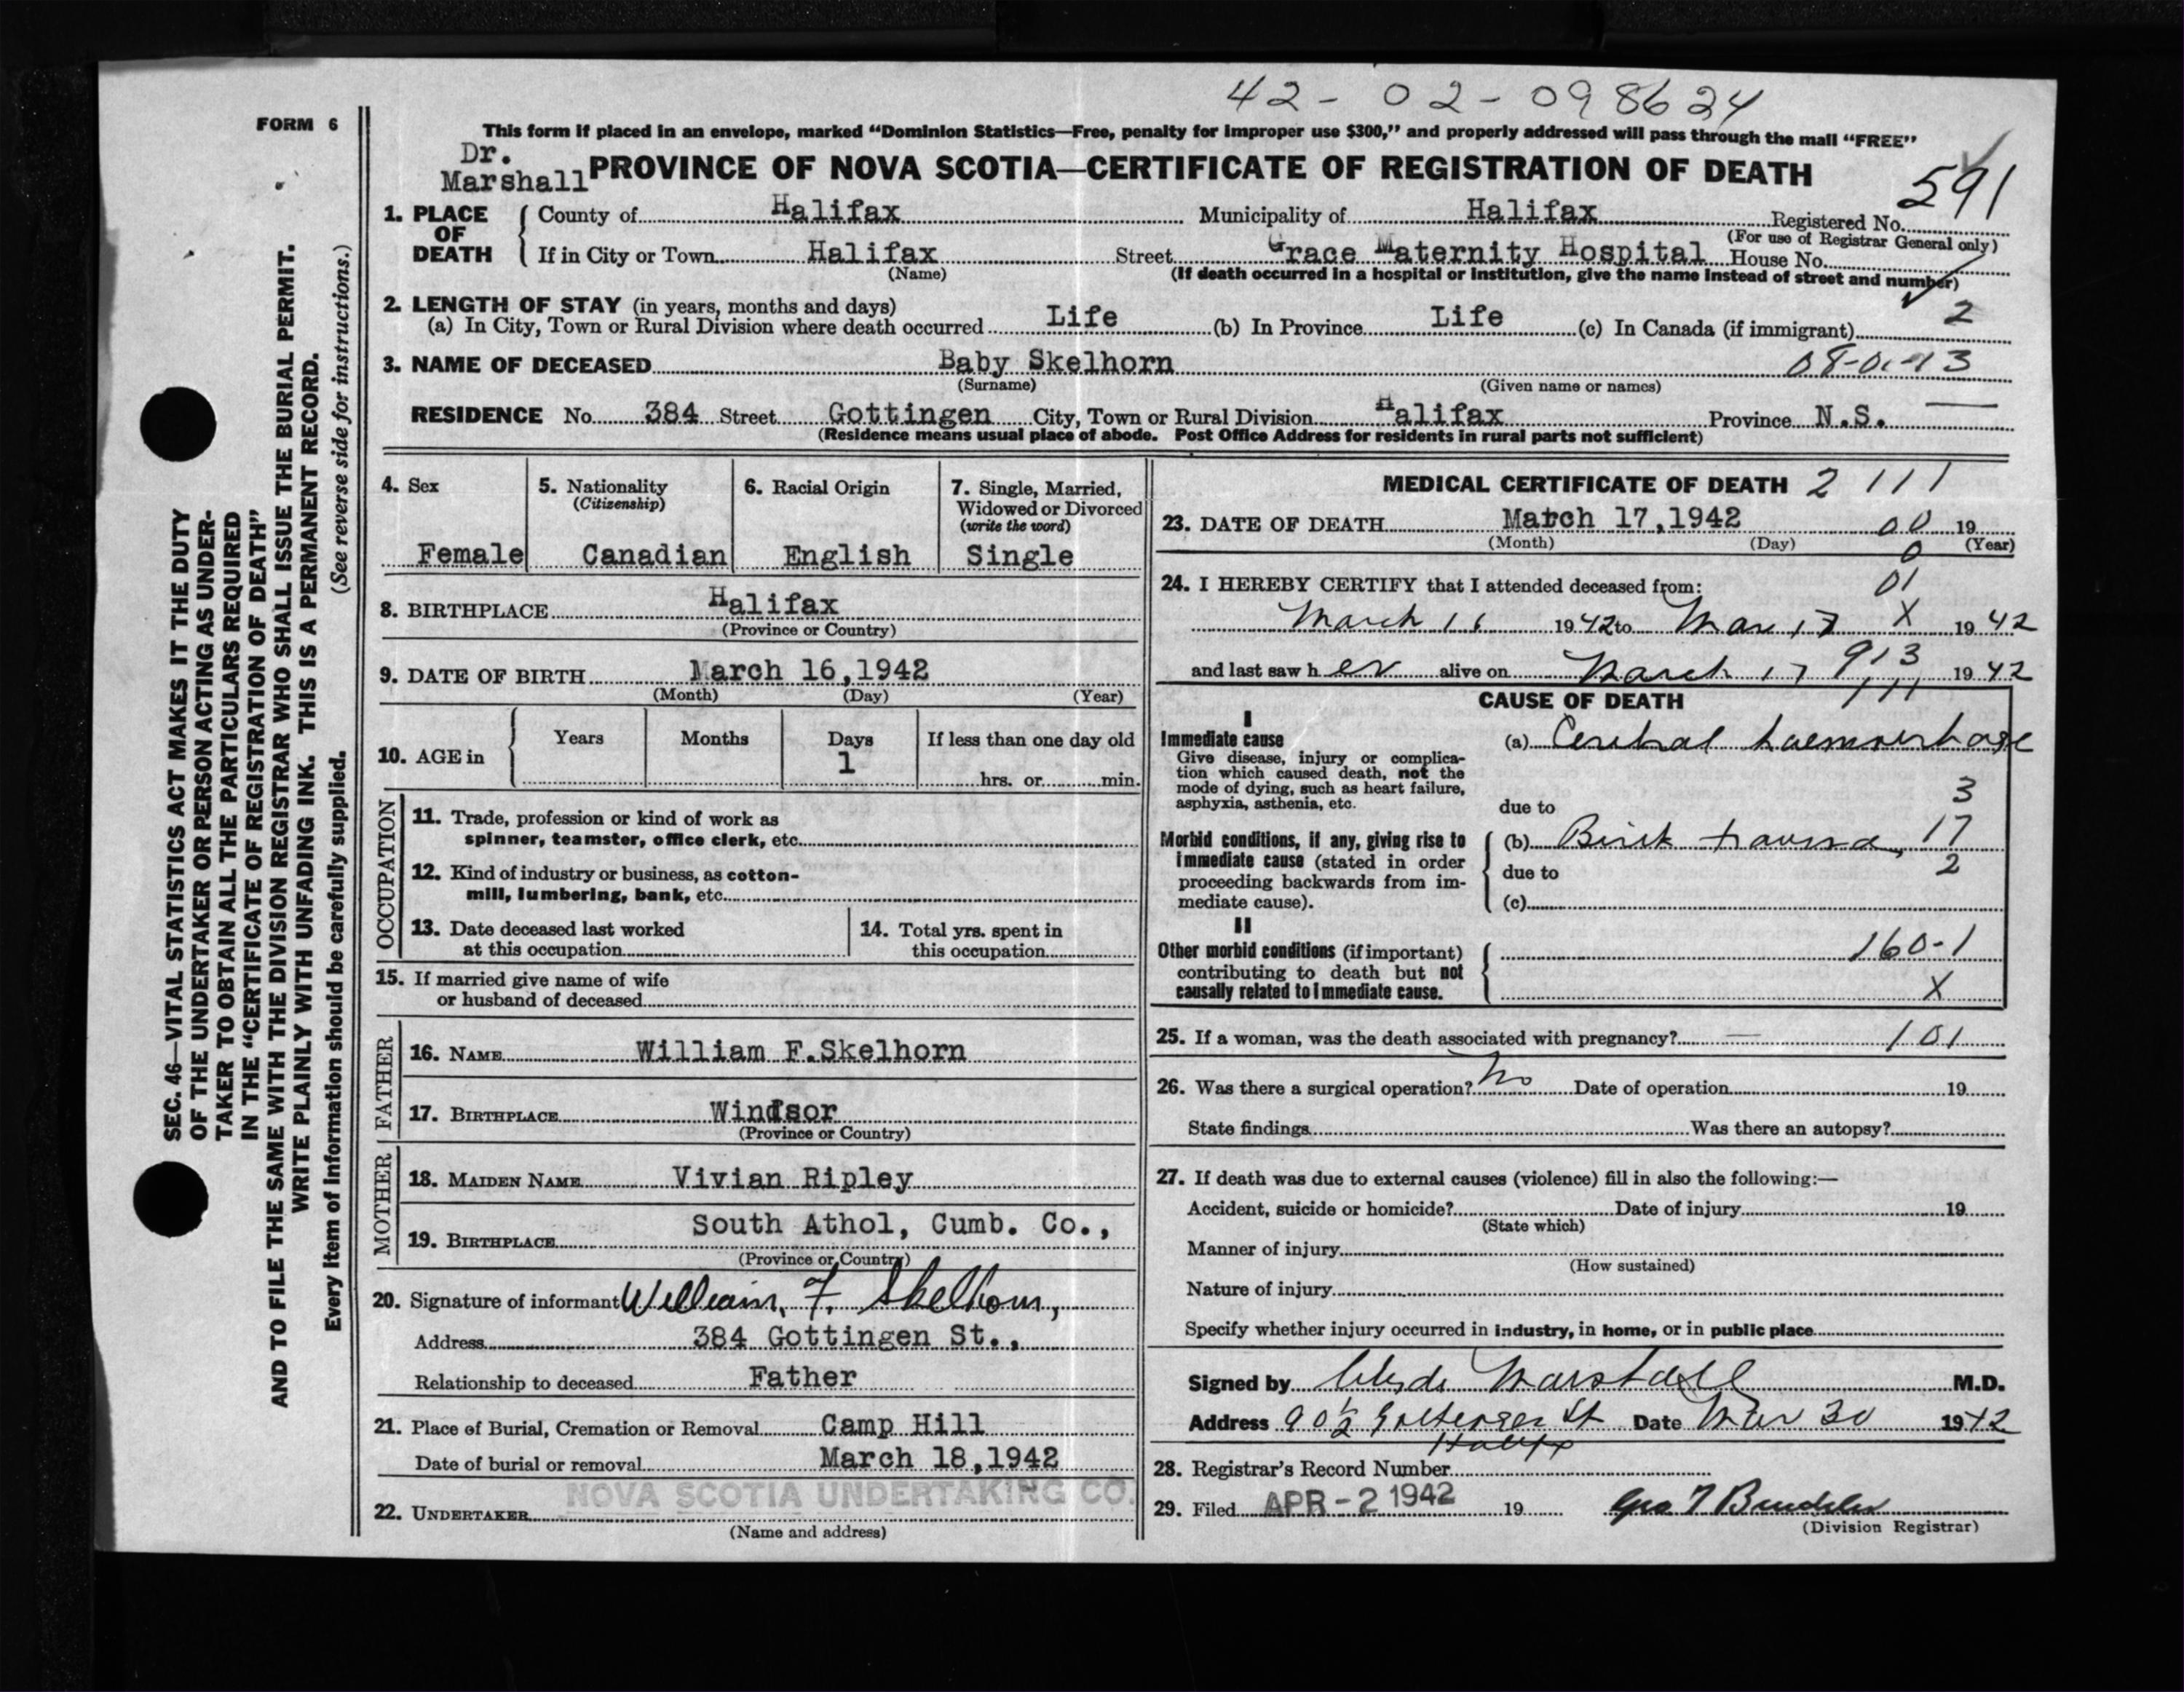 42-02-098624
FORM 6
This form if placed in an envelope, marked “Dominion Statistics—Free, penalty for improper use $300,” and properly addressed will pass through the mail “FREE”
Dr.
Marshall
PROVINCE OF NOVA SCOTIA—CERTIFICATE OF REGISTRATION OF DEATH
591
1. PLACE OF DEATH { County of Halifax Municipality of Halifax Registered No.
(For use of Registrar General only)
If in City or Town Halifax Street Grace Maternity Hospital House No.
(Name) (If death occurred in a hospital or institution, give the name instead of street and number)
2. LENGTH OF STAY (in years, months and days)
(a) In City, Town or Rural Division where death occurred Life (b) In Province Life (c) In Canada (if immigrant) 2
3. NAME OF DECEASED Baby Skelhorn
(Surname) (Given name or names)
RESIDENCE No. 384 Street Gottingen City, Town or Rural Division Halifax Province N.S.
(Residence means usual place of abode. Post Office Address for residents in rural parts not sufficient)
4. Sex
Female
5. Nationality
(Citizenship)
Canadian
6. Racial Origin
English
7. Single, Married,
Widowed or Divorced
(write the word)
Single
8. BIRTHPLACE Halifax
(Province or Country)
9. DATE OF BIRTH March 16,1942
(Month) (Day) (Year)
10. AGE in { Years Months Days If less than one day old
1 hrs. or min.
OCCUPATION
11. Trade, profession or kind of work as
spinner, teamster, office clerk, etc.
12. Kind of industry or business, as cotton-
mill, lumbering, bank, etc.
13. Date deceased last worked
at this occupation
14. Total yrs. spent in
this occupation
15. If married give name of wife
or husband of deceased
FATHER
16. NAME William F.Skelhorn
17. BIRTHPLACE Windsor
(Province or Country)
MOTHER
18. MAIDEN NAME Vivian Ripley
19. BIRTHPLACE South Athol, Cumb. Co.,
(Province or Country)
20. Signature of informant William F. Skelhorn,
Address 384 Gottingen St.,
Relationship to deceased Father
21. Place of Burial, Cremation or Removal Camp Hill
Date of burial or removal March 18,1942
22. UNDERTAKER NOVA SCOTIA UNDERTAKING CO.
(Name and address)
MEDICAL CERTIFICATE OF DEATH 2 111
23. DATE OF DEATH March 17,1942 00 19
(Month) (Day) (Year)
0
24. I HEREBY CERTIFY that I attended deceased from: 01
March 16 1942 to Mar 17 X 1942
and last saw h er alive on March 17 913 1942
CAUSE OF DEATH 111
I
Immediate cause
Give disease, injury or complica-
tion which caused death, not the
mode of dying, such as heart failure,
asphyxia, asthenia, etc.
(a) Cerebral haemorrhage
due to 3
Morbid conditions, if any, giving rise to
immediate cause (stated in order
proceeding backwards from im-
mediate cause).
(b) Birth trauma 17
due to 2
(c)
II
Other morbid conditions (if important)
contributing to death but not
causally related to immediate cause.
160-1
X
25. If a woman, was the death associated with pregnancy? — 101
26. Was there a surgical operation? No Date of operation 19
State findings Was there an autopsy?
27. If death was due to external causes (violence) fill in also the following:—
Accident, suicide or homicide? Date of injury 19
(State which)
Manner of injury
(How sustained)
Nature of injury
Specify whether injury occurred in industry, in home, or in public place
Signed by Clyde Marshall M.D.
Address 90½ Gottingen St Date Mar 30 1942
Halifx
28. Registrar's Record Number
29. Filed APR - 2 1942 19
(Division Registrar)
SEC. 46—VITAL STATISTICS ACT MAKES IT THE DUTY
OF THE UNDERTAKER OR PERSON ACTING AS UNDER-
TAKER TO OBTAIN ALL THE PARTICULARS REQUIRED
IN THE “CERTIFICATE OF REGISTRATION OF DEATH”
AND TO FILE THE SAME WITH THE DIVISION REGISTRAR WHO SHALL ISSUE THE BURIAL PERMIT.
WRITE PLAINLY WITH UNFADING INK. THIS IS A PERMANENT RECORD.
Every item of information should be carefully supplied. (See reverse side for instructions.)